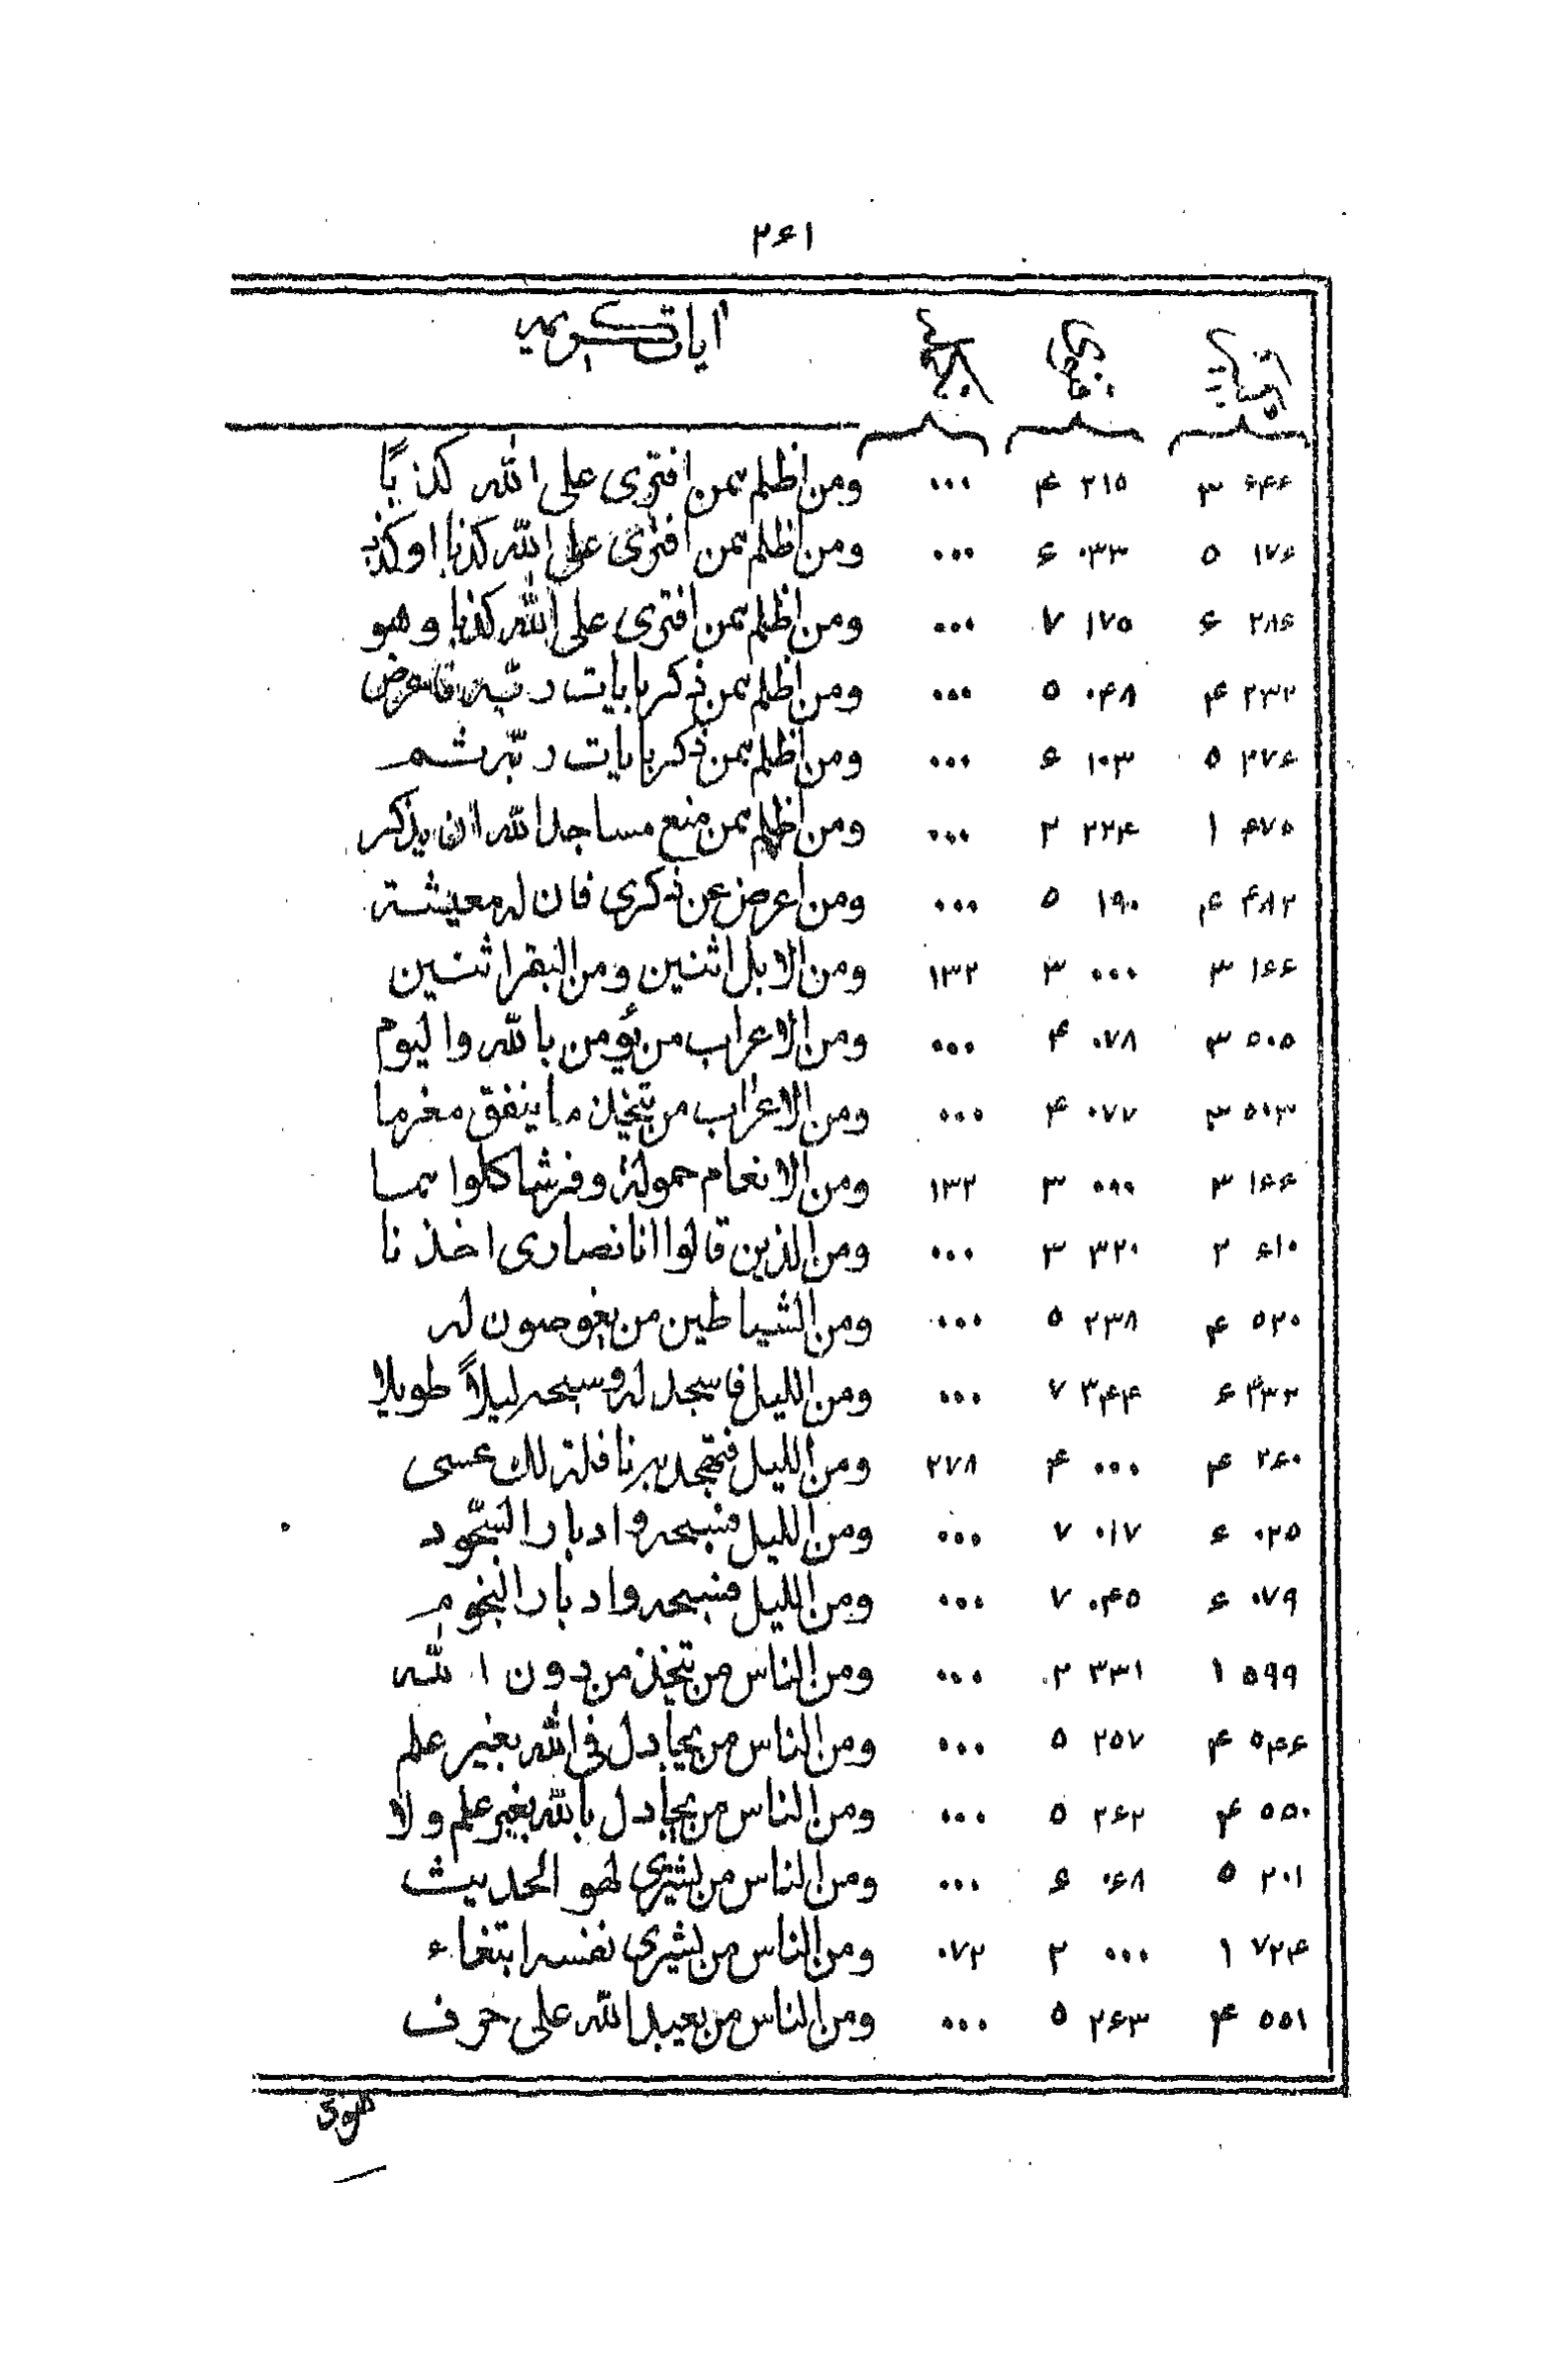 ۲۶۱
آیات کریمه
۳ ۶۴۶ ۴ ۲۱۵ ۰۰۰ ومن اظلم ممن افتری علی الله کذبًا
۵ ۱۷۶ ۶ ۰۳۳ ۰۰۰ ومن اظلم ممن افتری علی الله کذبا او کذب
۶ ۲۸۶ ۷ ۱۷۵ ۰۰۰ ومن اظلم ممن افتری علی الله کذبا وهو
۴ ۲۳۲ ۵ ۰۴۸ ۰۰۰ ومن اظلم ممن ذکر بایات ربه فاعرض
۵ ۲۷۶ ۶ ۱۰۳ ۰۰۰ ومن اظلم ممن ذکر بایات ربه ثم
۱ ۴۷۵ ۲ ۲۲۴ ۰۰۰ ومن اظلم ممن منع مساجد الله ان یذکر
۴ ۴۸۲ ۵ ۱۹۰ ۰۰۰ ومن اعرض عن ذکری فان له معیشة
۳ ۱۶۶ ۳ ۰۰۰ ۱۳۲ ومن الابل اثنین ومن البقر اثنین
۳ ۵۰۵ ۴ ۰۷۸ ۰۰۰ ومن الاعراب من یؤمن بالله والیوم
۳ ۵۰۳ ۴ ۰۷۷ ۰۰۰ ومن الاعراب من یتخذ ما ینفق مغرما
۳ ۱۶۶ ۳ ۰۰۰ ۱۳۲ ومن الانعام حمولة وفرشا کلوا مما
۲ ۶۱۰ ۳ ۳۲۰ ۰۰۰ ومن الذین قالوا انا نصاری اخذنا
۴ ۵۲۰ ۵ ۲۳۸ ۰۰۰ ومن الشیاطین من یغوصون له
۶ ۴۳۲ ۷ ۳۴۴ ۰۰۰ ومن اللیل فاسجد له وسبحه لیلاً طویلا
۴ ۲۶۰ ۴ ۰۰۰ ۲۷۸ ومن اللیل فتهجد به نافلة لك عسی
۶ ۰۲۵ ۷ ۰۱۷ ۰۰۰ ومن اللیل فسبحه وادبار السّجود
۶ ۰۷۹ ۷ ۰۴۵ ۰۰۰ ومن اللیل فسبحه وادبار النجوم
۱ ۵۹۹ ۲ ۳۳۱ ۰۰۰ ومن الناس من یتخذ من دون الله
۴ ۵۴۶ ۵ ۲۵۷ ۰۰۰ ومن الناس من یجادل فی الله بغیر علم
۴ ۵۵۰ ۵ ۲۶۲ ۰۰۰ ومن الناس من یجادل بالله بغیر علم ولا
۵ ۲۰۱ ۶ ۰۶۸ ۰۰۰ ومن الناس من یشتری لهو الحدیث
۱ ۷۲۴ ۲ ۰۰۰ ۰۷۲ ومن الناس من یشری نفسه ابتغاء
۴ ۵۵۱ ۵ ۲۶۳ ۰۰۰ ومن الناس من یعبد الله علی حرف